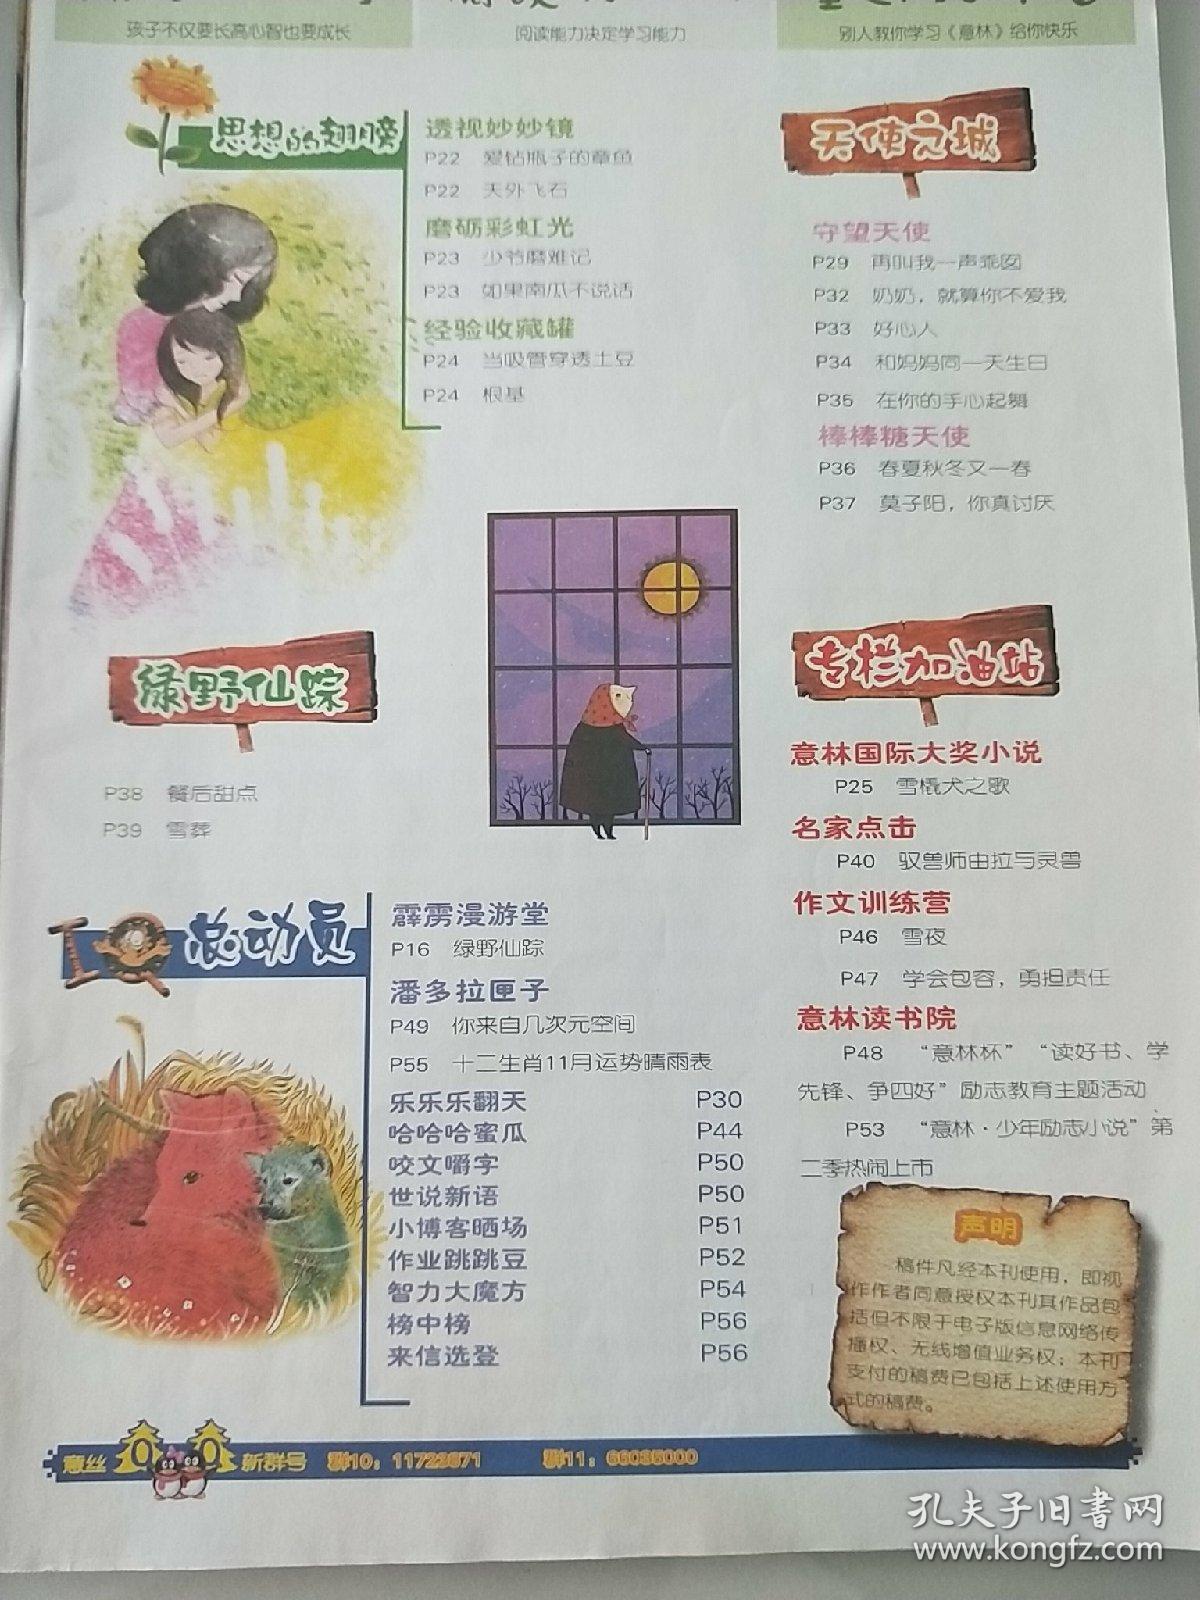 孩子不仅要长高心智也要成长
阅读能力决定学习能力
别人教你学习《意林》给你快乐
思想的翅膀
透视妙妙镜
P22 爱钻瓶子的章鱼
P22 天外飞石
磨砺彩虹光
P23 少爷磨难记
P23 如果南瓜不说话
经验收藏罐
P24 当吸管穿透土豆
P24 根基
天使之城
守望天使
P29 再叫我一声乖囡
P32 奶奶，就算你不爱我
P33 好心人
P34 和妈妈同一天生日
P35 在你的手心起舞
棒棒糖天使
P36 春夏秋冬又一春
P37 莫子阳，你真讨厌
绿野仙踪
P38 餐后甜点
P39 雪葬
专栏加油站
意林国际大奖小说
P25 雪橇犬之歌
名家点击
P40 驭兽师由拉与灵兽
作文训练营
P46 雪夜
P47 学会包容，勇担责任
意林读书院
P48 “意林杯”“读好书、学
先锋、争四好”励志教育主题活动
P53 “意林·少年励志小说”第
二季热闹上市
IQ总动员
霹雳漫游堂
P16 绿野仙踪
潘多拉匣子
P49 你来自几次元空间
P55 十二生肖11月运势晴雨表
乐乐乐翻天 P30
哈哈哈蜜瓜 P44
咬文嚼字 P50
世说新语 P50
小博客晒场 P51
作业跳跳豆 P52
智力大魔方 P54
榜中榜 P56
来信选登 P56
声明
稿件凡经本刊使用，即视
作作者同意授权本刊其作品包
括但不限于电子版信息网络传
播权、无线增值业务权；本刊
支付的稿费已包括上述使用方
式的稿费。
意丝QQ新群号 群10：11722871 群11：66035000
孔夫子旧书网
www.kongfz.com